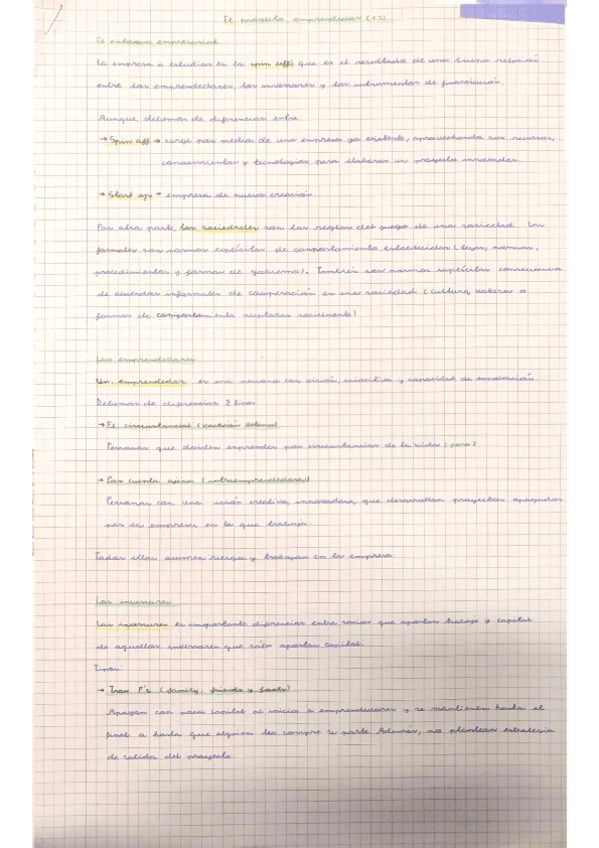 El proyecto emprendedor (t.3)
El entorno empresarial
La empresa a estudiar es la spin off, que es el resultado de una buena relación
entre los emprendedores, los inversores y los instrumentos de financiación.
Aunque, debemos de diferenciar entre
→ Spin off → surge por medio de una empresa ya existente, aprovechando sus recursos,
conocimientos y tecnologías para elaborar un proyecto innovador
→ Start up → empresa de nueva creación.
Por otra parte, las sociedades son las reglas del juego de una sociedad. Las
formales son normas explícitas de comportamiento establecidas (leyes, normas,
procedimientos y formas de gobierno). También son normas implícitas consecuencia
de acuerdos informales de cooperación en una sociedad (cultura, valores o
formas de comportamiento aceptadas socialmente)
Los emprendedores
Un emprendedor es una persona con visión, iniciativa y capacidad de innovación.
Debemos de diferenciar 2 tipos
→ El circunstancial (variación externa)
Personas que deciden emprender por circunstancias de la vida (paro)
→ Por cuenta ajena (intraemprendedores)
Personas con una visión creativa, innovadora, que desarrollan proyectos apoyados
por la empresa en la que trabaja.
Todos ellos asumen riesgos y trabajan en la empresa.
Los inversores
Los inversores es importante diferenciar entre socios que aportan trabajo y capital
de aquellos inversores que sólo aportan capital.
Tipos
→ Tres F's (family, friends y fools)
Apoyan con poco capital al inicio a emprendedores y se mantienen hasta el
final o hasta que alguien les compre su parte. Además, no plantean estrategia
de salida del proyecto.